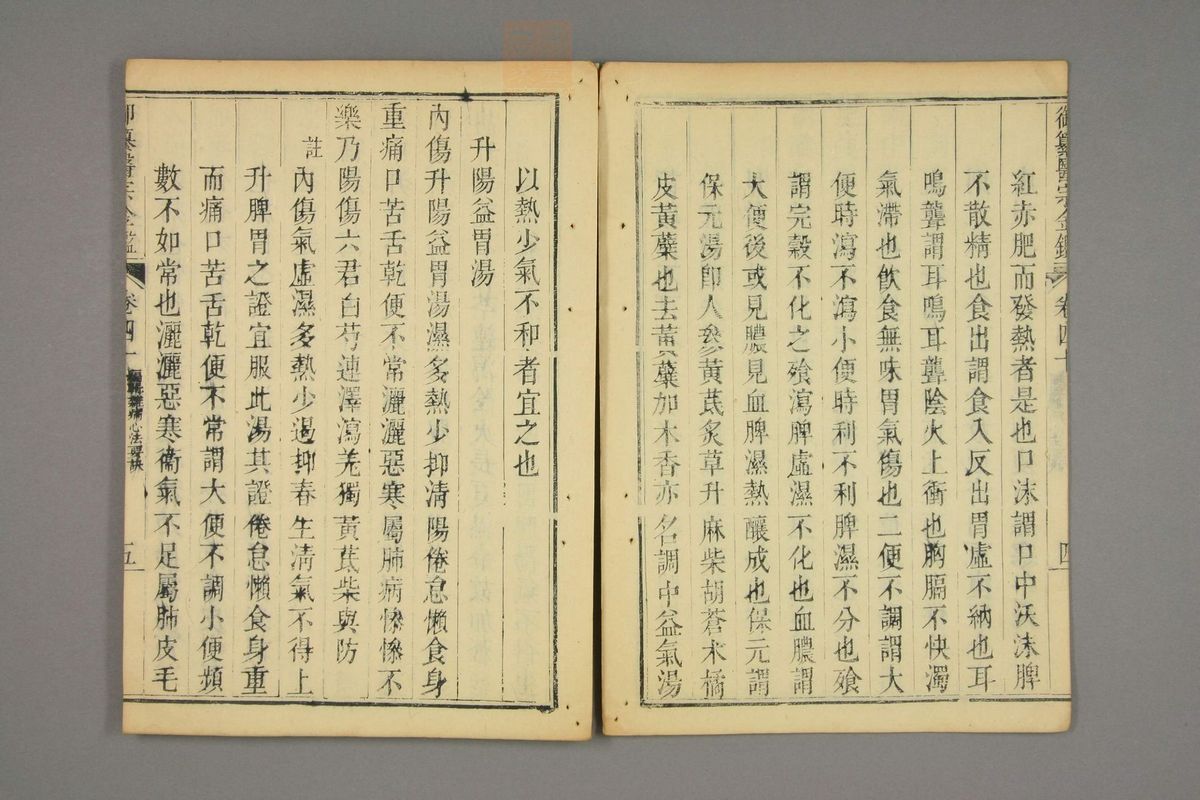 御纂醫宗金鑑 卷四十 四
紅赤肥而發熱者是也口沫謂口中沃沫脾
不散精也食出謂食入反出胃虛不納也耳
鳴聾謂耳鳴耳聾陰火上衝也胸膈不快濁
氣滯也飲食無味胃氣傷也二便不調謂大
便時瀉不瀉小便時利不利脾濕不分也飧
謂完穀不化之飧瀉脾虛濕不化也血膿謂
大便後或見膿見血脾濕熱釀成也保元謂
保元湯即人參黃芪炙草升麻柴胡蒼朮橘
皮黃蘗也去黃蘗加木香亦名調中益氣湯
以熱少氣不和者宜之也
升陽益胃湯
內傷升陽益胃湯濕多熱少抑清陽倦怠懶食身
重痛口苦舌乾便不常灑灑惡寒屬肺病慘慘不
樂乃陽傷六君白芍連澤瀉羌獨黃芪柴與防
註內傷氣虛濕多熱少遏抑春生清氣不得上
升脾胃之證宜服此湯其證倦怠懶食身重
而痛口苦舌乾便不常謂大便不調小便頻
數不如常也灑灑惡寒衞氣不足屬肺皮毛
御纂醫宗金鑑 卷四十 編輯雜病心法要訣 五